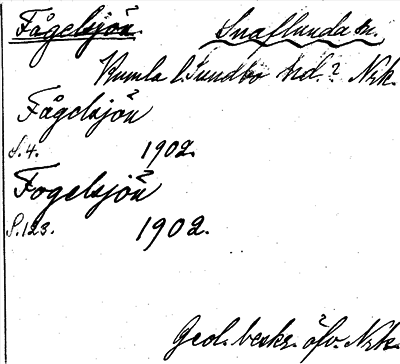 Fågelsjön Snaflunda sn.
Kumla l. Sundbo hd.? Nrk.
Fågelsjön
S. 4. 1902.
Fogelsjön
S. 123. 1902.
Geol. beskr. öfv. Nrk.